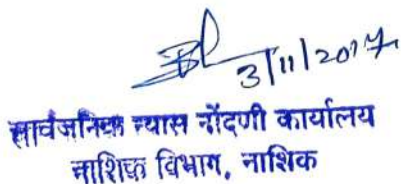 3/11/2017
सार्वजनिक न्यास नोंदणी कार्यालय
नाशिक विभाग, नाशिक